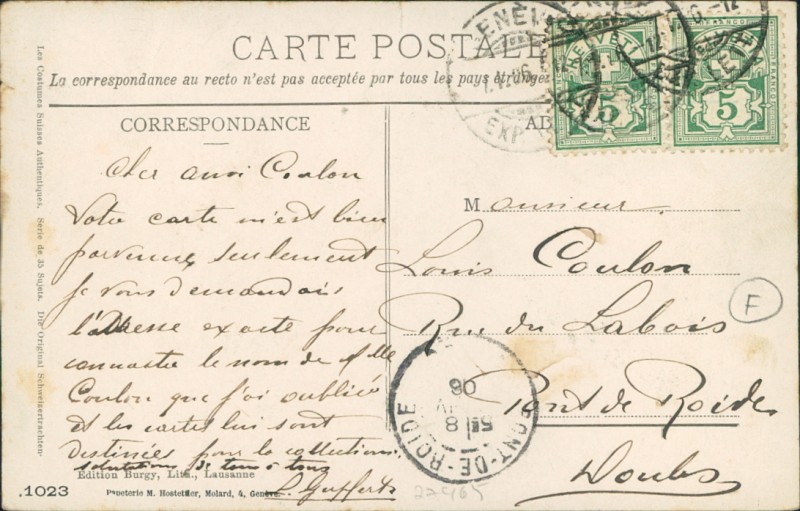 CARTE POSTALE
La correspondance au recto n'est pas acceptée par tous les pays étrangers
CORRESPONDANCE
AD
Cher ami Coulon
Votre carte m'est bien
parvenue seulement
je vous demandais
l'adresse exacte pour
connaitre le nom de Mlle
Coulon que j'ai oublié
et les cartes lui sont
destinées pour la collection.
salutations de tous à tous
Monsieur
Louis Coulon
Rue du Labois
Pont de Roide
Doubs
F
HELVETIA
5
FRANCO
5
FRANCO
EXP.
PONT-DE-ROIDE
5E 8
06
Les Costumes Suisses Authentiques. Serie de 35 Sujets. Die Original Schweizertrachten.
Edition Burgy, Lith., Lausanne
.1023
Papeterie M. Hostettler, Molard, 4, Genève.
22465